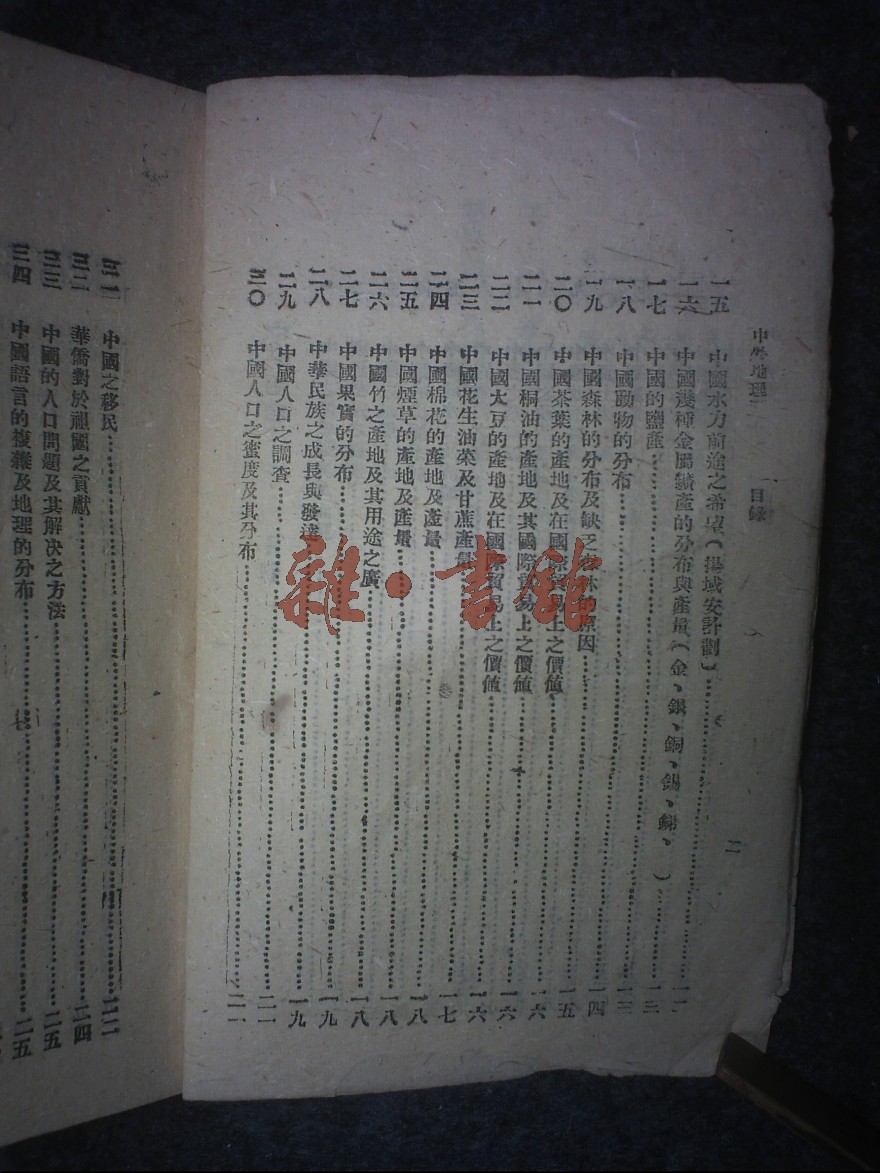 中外地理 目錄 二
一五 中國水力前途之希望(揚域安計劃)
一六 中國幾種金屬鑛產的分布與產量(金、銀、銅、錫、銻、)
一七 中國的鹽產 一三
一八 中國動物的分布 一三
一九 中國森林的分布及缺乏森林 原因 一四
二〇 中國茶葉的產地及在國際貿易上之價値 一五
二一 中國桐油的產地及其國際貿易上之價値 一六
二二 中國大豆的產地及在國際貿易上之價値 一六
二三 中國花生油菜及甘蔗產量 一六
二四 中國棉花的產地及產量 一七
二五 中國煙草的產地及產量 一八
二六 中國竹之產地及其用途之廣 一八
二七 中國果實的分布 一八
二八 中華民族之成長與發達 一九
二九 中國人口之調查
三〇 中國人口之密度及其分布
三一 中國之移民
三二 華僑對於祖國之貢獻 二四
三三 中國的人口問題及其解決之方法 二五
三四 中國語言的複雜及地理的分布 二五
雜·書館